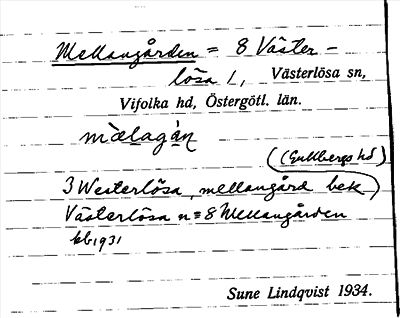 Mellangården = 8 Väster-
lösa 1, Västerlösa sn,
Vifolka hd, Östergötl. län.
mælagán
(Gullbergs hd)
3 Westerlösa, mellangård bek)
Västerlösa n=8 Mellangården
kb 1931
Sune Lindqvist 1934.